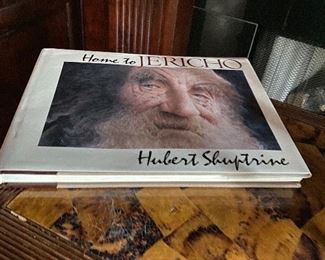 Home to JERICHO
Hubert Shuptrine